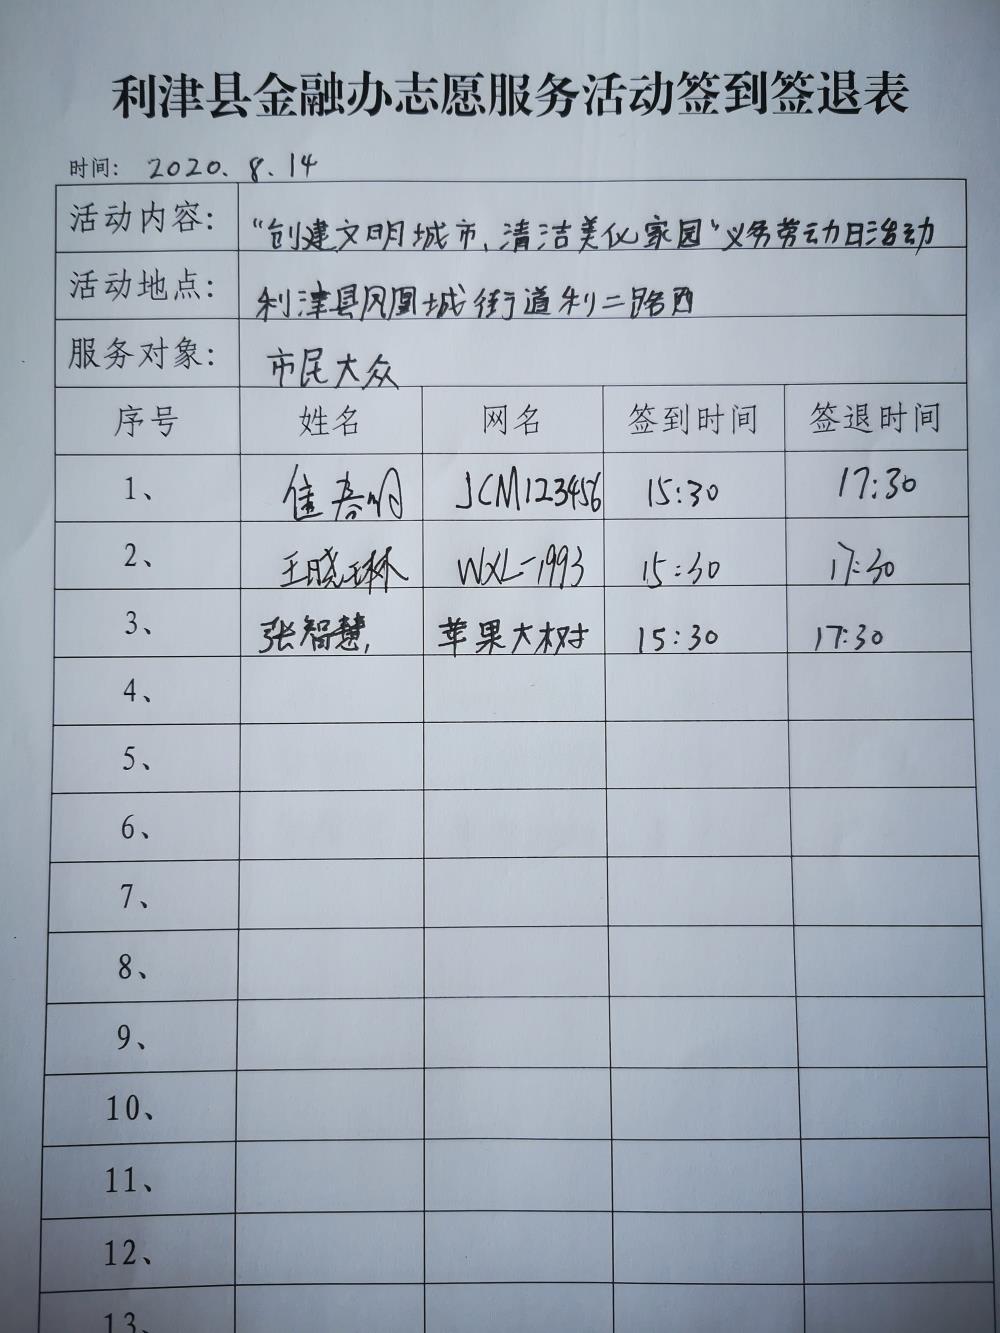 利津县金融办志愿服务活动签到签退表
时间: 2020.8.14
活动内容: “创建文明城市、清洁美化家园”义务劳动日活动
活动地点: 利津县凤凰城街道利二路西
服务对象: 市民大众
序号 姓名 网名 签到时间 签退时间
1、 JCM123456 15:30 17:30
2、 王晓琳 WXL-1993 15:30 17:30
3、 张智慧, 苹果大树 15:30 17:30
4、
5、
6、
7、
8、
9、
10、
11、
12、
13、